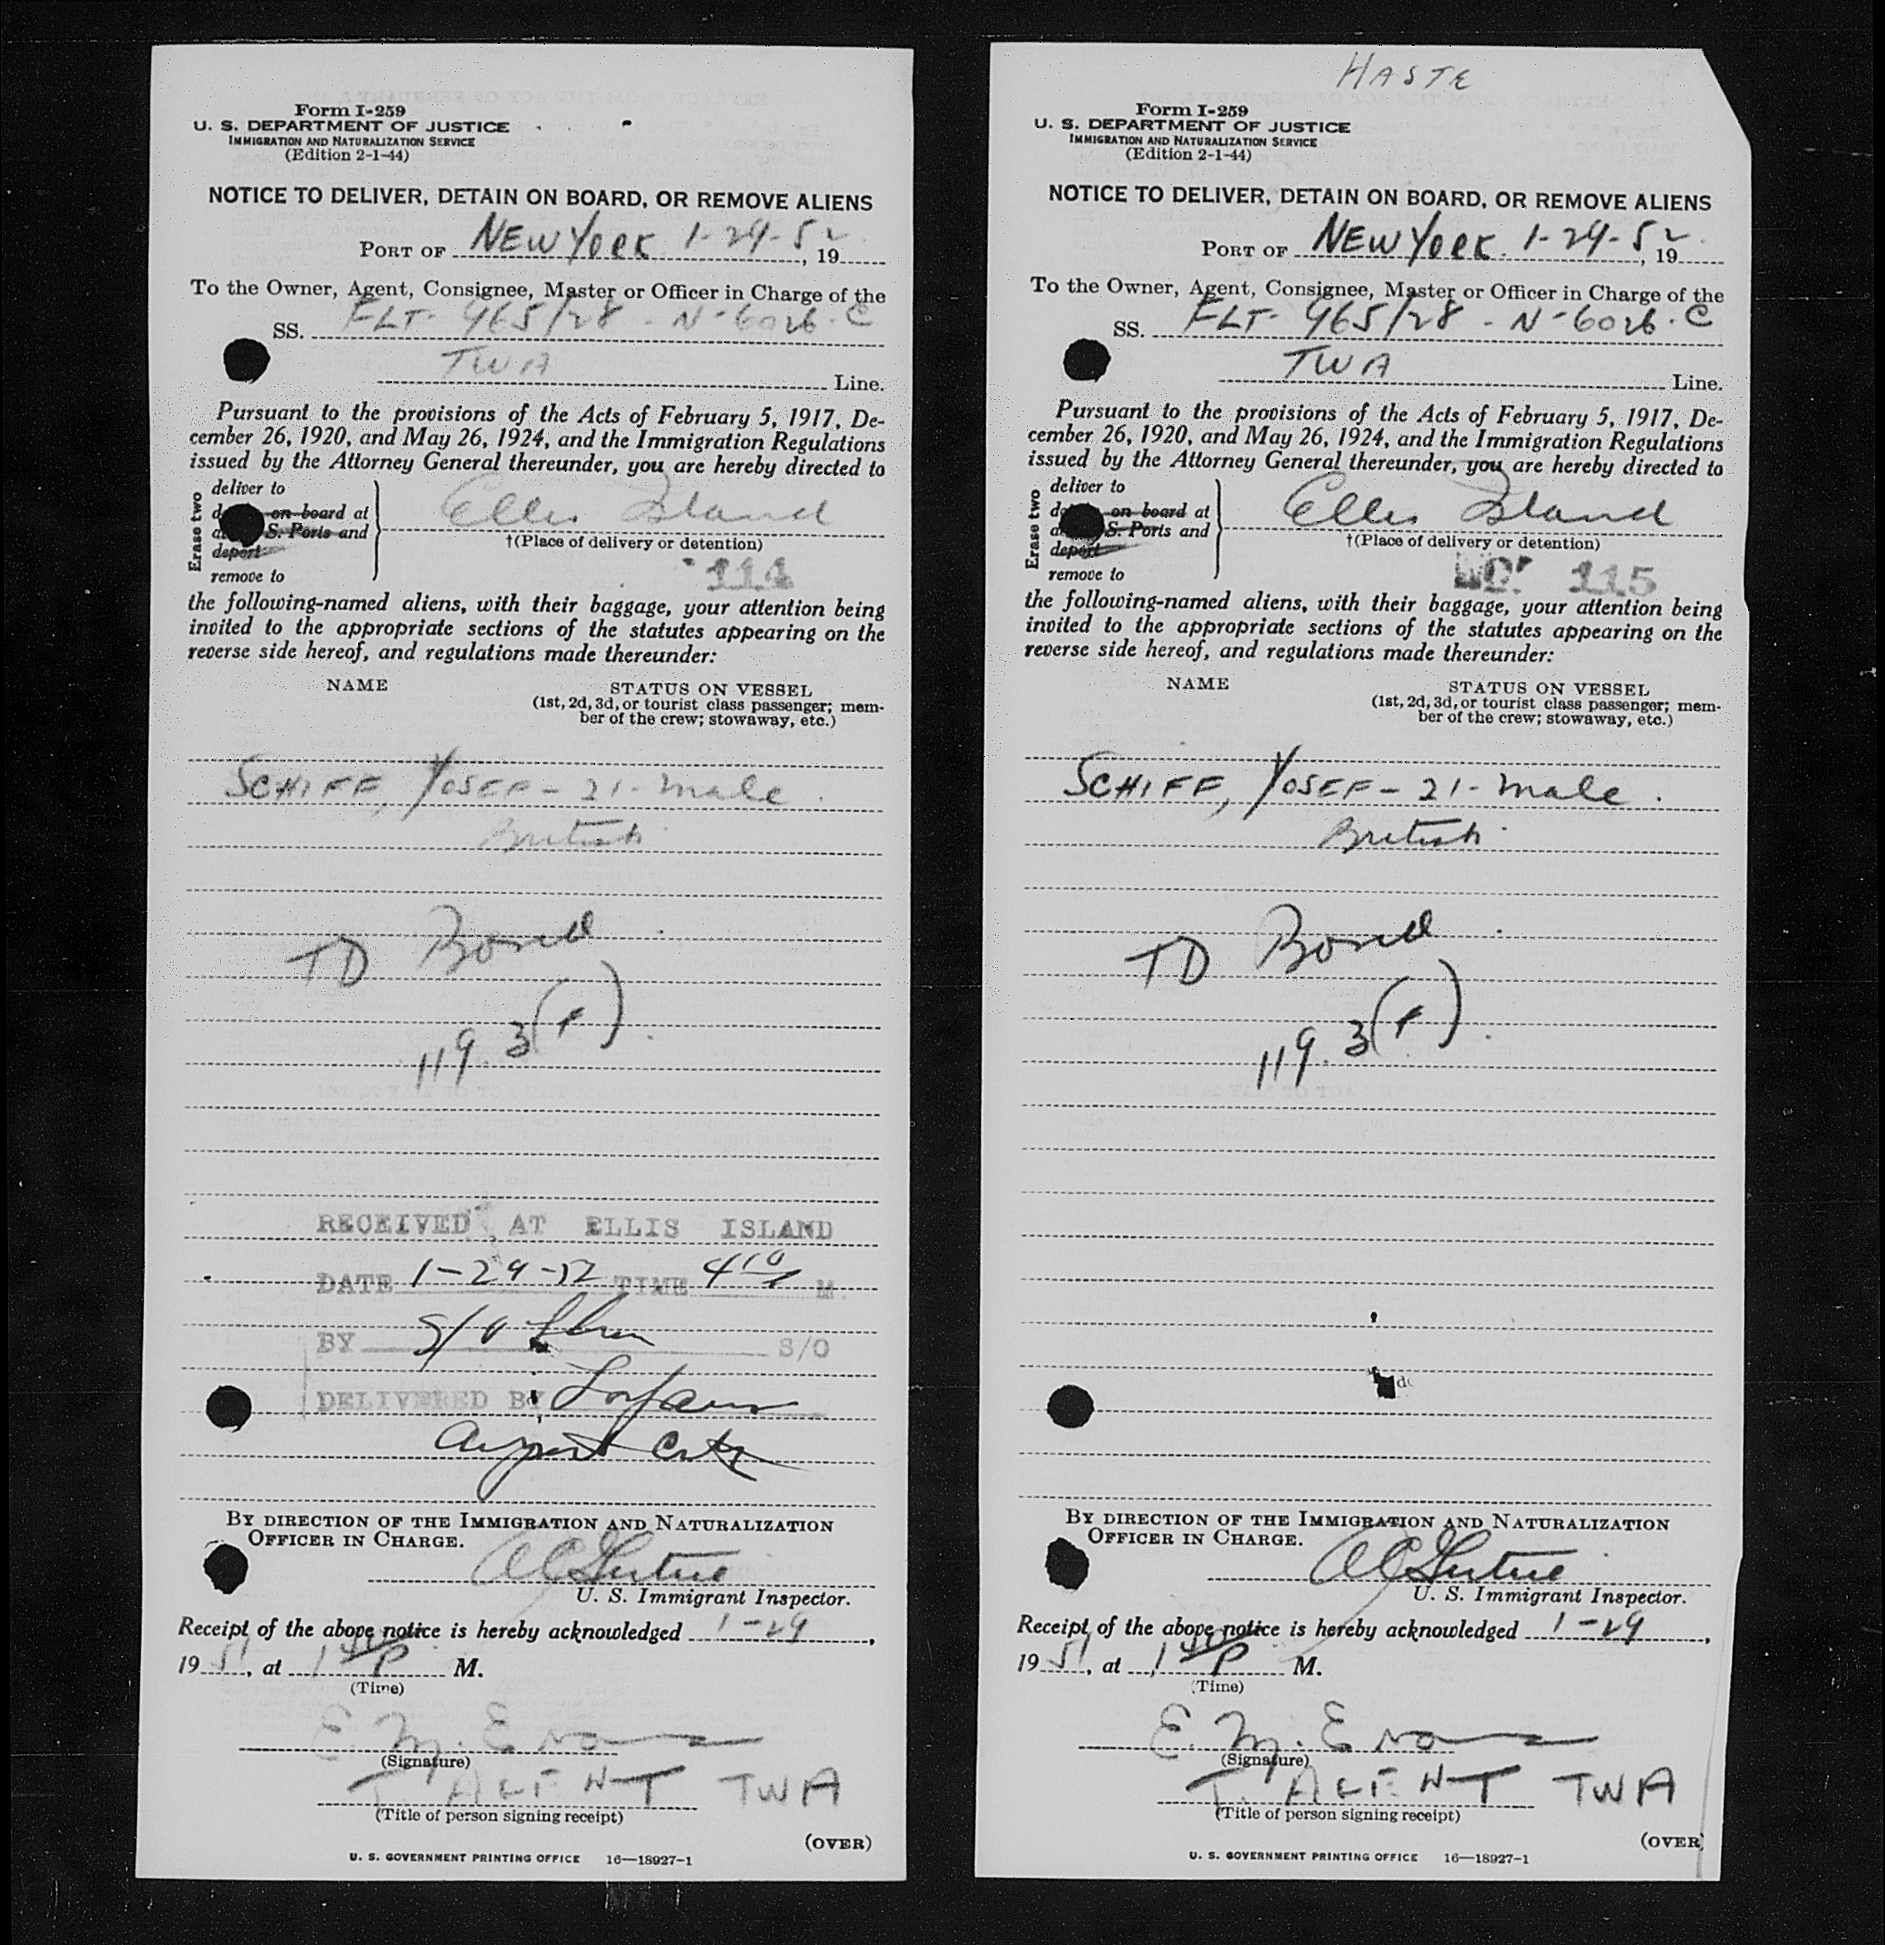 Form I-259
U. S. DEPARTMENT OF JUSTICE
IMMIGRATION AND NATURALIZATION SERVICE
(Edition 2-1-44)
NOTICE TO DELIVER, DETAIN ON BOARD, OR REMOVE ALIENS
PORT OF NEW YORK 1-29-52, 19
To the Owner, Agent, Consignee, Master or Officer in Charge of the
SS. FLT- 965/28 - N-6026-C
TWA Line.
Pursuant to the provisions of the Acts of February 5, 1917, De-
cember 26, 1920, and May 26, 1924, and the Immigration Regulations
issued by the Attorney General thereunder, you are hereby directed to
Erase two
deliver to
on board at
S. Ports and
deport
remove to
Ellis Island
†(Place of delivery or detention)
114
the following-named aliens, with their baggage, your attention being
invited to the appropriate sections of the statutes appearing on the
reverse side hereof, and regulations made thereunder:
NAME
STATUS ON VESSEL
(1st, 2d, 3d, or tourist class passenger; mem-
ber of the crew; stowaway, etc.)
SCHIFF, YOSEF - 21 - male.
British
TD Bond
119.3(F).
RECEIVED AT ELLIS ISLAND
DATE 1-29-52 TIME 4 10 M.
BY S/O S/O
DELIVERED BY
Airport
BY DIRECTION OF THE IMMIGRATION AND NATURALIZATION
OFFICER IN CHARGE.
U. S. Immigrant Inspector.
Receipt of the above notice is hereby acknowledged 1-29,
19 51, at 1 40 P M.
(Time)
E. M. Evans
(Signature)
T. AGENT TWA
(Title of person signing receipt)
(OVER)
U. S. GOVERNMENT PRINTING OFFICE 16—18927-1
HASTE
Form I-259
U. S. DEPARTMENT OF JUSTICE
IMMIGRATION AND NATURALIZATION SERVICE
(Edition 2-1-44)
NOTICE TO DELIVER, DETAIN ON BOARD, OR REMOVE ALIENS
PORT OF NEW YORK. 1-29-52, 19
To the Owner, Agent, Consignee, Master or Officer in Charge of the
SS. FLT- 965/28 - N-6026-C
TWA Line.
Pursuant to the provisions of the Acts of February 5, 1917, De-
cember 26, 1920, and May 26, 1924, and the Immigration Regulations
issued by the Attorney General thereunder, you are hereby directed to
Erase two
deliver to
on board at
S. Ports and
deport
remove to
Ellis Island
†(Place of delivery or detention)
115
the following-named aliens, with their baggage, your attention being
invited to the appropriate sections of the statutes appearing on the
reverse side hereof, and regulations made thereunder:
NAME
STATUS ON VESSEL
(1st, 2d, 3d, or tourist class passenger; mem-
ber of the crew; stowaway, etc.)
SCHIFF, YOSEF - 21 - male.
British
TD Bond
119.3(F).
BY DIRECTION OF THE IMMIGRATION AND NATURALIZATION
OFFICER IN CHARGE.
U. S. Immigrant Inspector.
Receipt of the above notice is hereby acknowledged 1-29,
19 51, at 1 40 P M.
(Time)
E. M. Evans
(Signature)
T. AGENT TWA
(Title of person signing receipt)
(OVER)
U. S. GOVERNMENT PRINTING OFFICE 16—18927-1